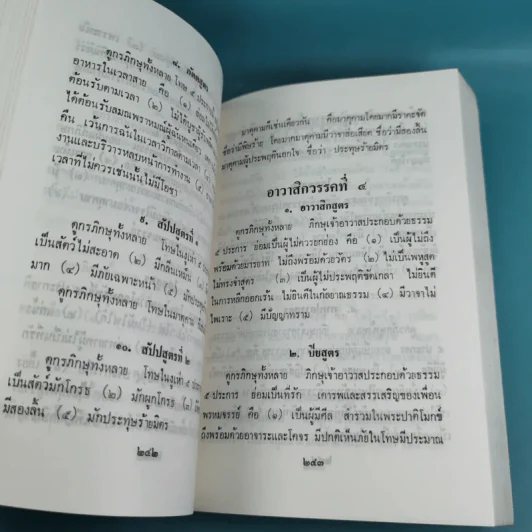 ๘. ภัตตสูตร
ดูกรภิกษุทั้งหลาย โทษ ๕ ประการ
อาหารในเวลาสาย คือ
ต้อนรับตามเวลา (๒) ไม่ได้บูชา
ได้ต้อนรับสมณพราหมณ์ผู้ฉันหนเดียว
คืน เว้นการฉันในเวลาวิกาลตามเวลา
งานและบริวารหลบหน้าการทำงาน (๕)
เวลาที่ไม่ควรเช่นนั้นไม่มีโอชา
๙. สัปปสูตรที่ ๑
ดูกรภิกษุทั้งหลาย โทษในงูเห่า ๕
เป็นสัตว์ไม่สะอาด (๒) มีกลิ่นเหม็น (๓)
มาก (๔) มีภัยเฉพาะหน้า (๕)
ดูกรภิกษุทั้งหลาย โทษในมาตุคาม
๑๐. สัปปสูตรที่ ๒
ดูกรภิกษุทั้งหลาย โทษในงูเห่า ๕ ประการ
เป็นสัตว์มักโกรธ (๒) มักผูกโกรธ (๓)
มีสองลิ้น (๕) มักประทุษร้ายมิตร
๒๕๒
มาตุคามก็เช่นเดียวกัน คือมาตุคามโดยมากมีราคะจัด
ชื่อว่ามีพิษร้าย โดยมากมาตุคามมีวาจาส่อเสียด ชื่อว่ามีสองลิ้น
มาตุคามผู้ประพฤตินอกใจ ชื่อว่า ประทุษร้ายมิตร
อาวาสิกวรรคที่ ๔
๑. อาวาสิกสูตร
ดูกรภิกษุทั้งหลาย ภิกษุเจ้าอาวาสประกอบด้วยธรรม
๕ ประการ ย่อมเป็นผู้ไม่ควรยกย่อง คือ (๑) เป็นผู้ไม่ถึง
พร้อมด้วยมารยาท ไม่ถึงพร้อมด้วยวัตร (๒) ไม่เป็นพหูสูต
ไม่ทรงจำสูตร (๓) เป็นผู้ไม่ประพฤติขัดเกลา ไม่ยินดี
ในการหลีกออกเร้น ไม่ยินดีในกัลยาณธรรม (๔) มีวาจาไม่
ไพเราะ (๕) มีปัญญาทราม
๒. ปิยสูตร
ดูกรภิกษุทั้งหลาย ภิกษุเจ้าอาวาสประกอบด้วยธรรม
๕ ประการ ย่อมเป็นที่รัก เคารพและสรรเสริญของเพื่อน
พรหมจรรย์ คือ (๑) เป็นผู้มีศีล สำรวมในพระปาติโมกข์
ถึงพร้อมด้วยอาจาระและโคจร มีปกติเห็นภัยในโทษมีประมาณ
๒๕๓